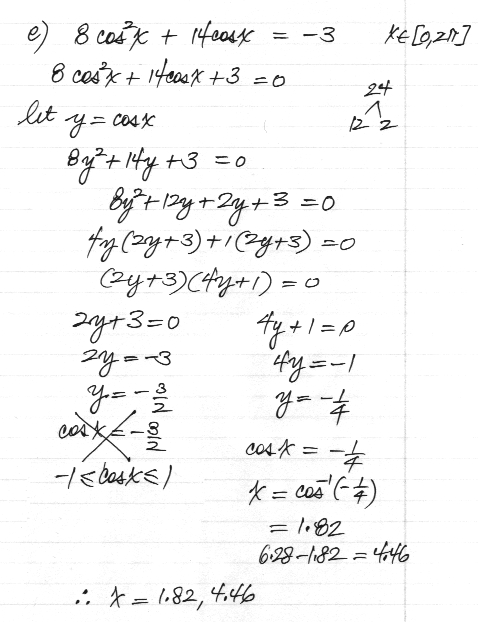 e) 8 cos²x + 14cosx = -3 x∈[0,2π]
8 cos²x + 14cosx + 3 = 0
24
let y = cosx
12 2
8y² + 14y + 3 = 0
8y² + 12y + 2y + 3 = 0
4y(2y+3) + 1(2y+3) = 0
(2y+3)(4y+1) = 0
2y+3 = 0 4y+1 = 0
2y = -3 4y = -1
y = -3/2 y = -1/4
cosx = -3/2 cosx = -1/4
-1 ≤ cosx ≤ 1
x = cos⁻¹(-1/4)
= 1.82
6.28 - 1.82 = 4.46
∴ x = 1.82, 4.46